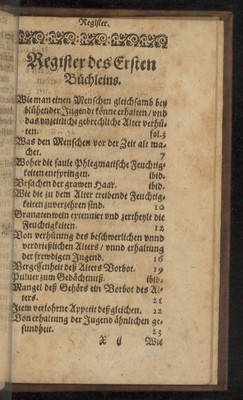 Register.
Register des Ersten
Büchleins.
Wie man einen Menschen gleichsamb bey
blühender Jugendt könne erhalten / vnd
das vnzeitliche gebrechliche Alter verhü-
ten. fol.3
Was den Menschen vor der Zeit alt ma-
chet. 7
Woher die faule Phlegmatische Feuchtig-
keiten entspringen. ibid.
Vrsachen der grawen Haar. ibid.
Wie die zu dem Alter treibende Feuchtig-
keiten zuverzehren sind. 10
Granatenwein extenuier vnd zertheyle die
Feuchtigkeiten. 12
Von verhütung des beschwerlichen vnnd
verdrießlichen Alters / vnnd erhaltung
der frewdigen Jugend. 16
Vergessenheit deß Alters Vorbot. 19
Puluer zum Gedächtnuß. ibid.
Mangel deß Gehörs ein Vorbot des Al-
ters. 21
Item verlohrne Appetit deßgleichen. 22
Von erhaltung der Jugend ähnlichen ge-
sundheit. 23
X ij Wie